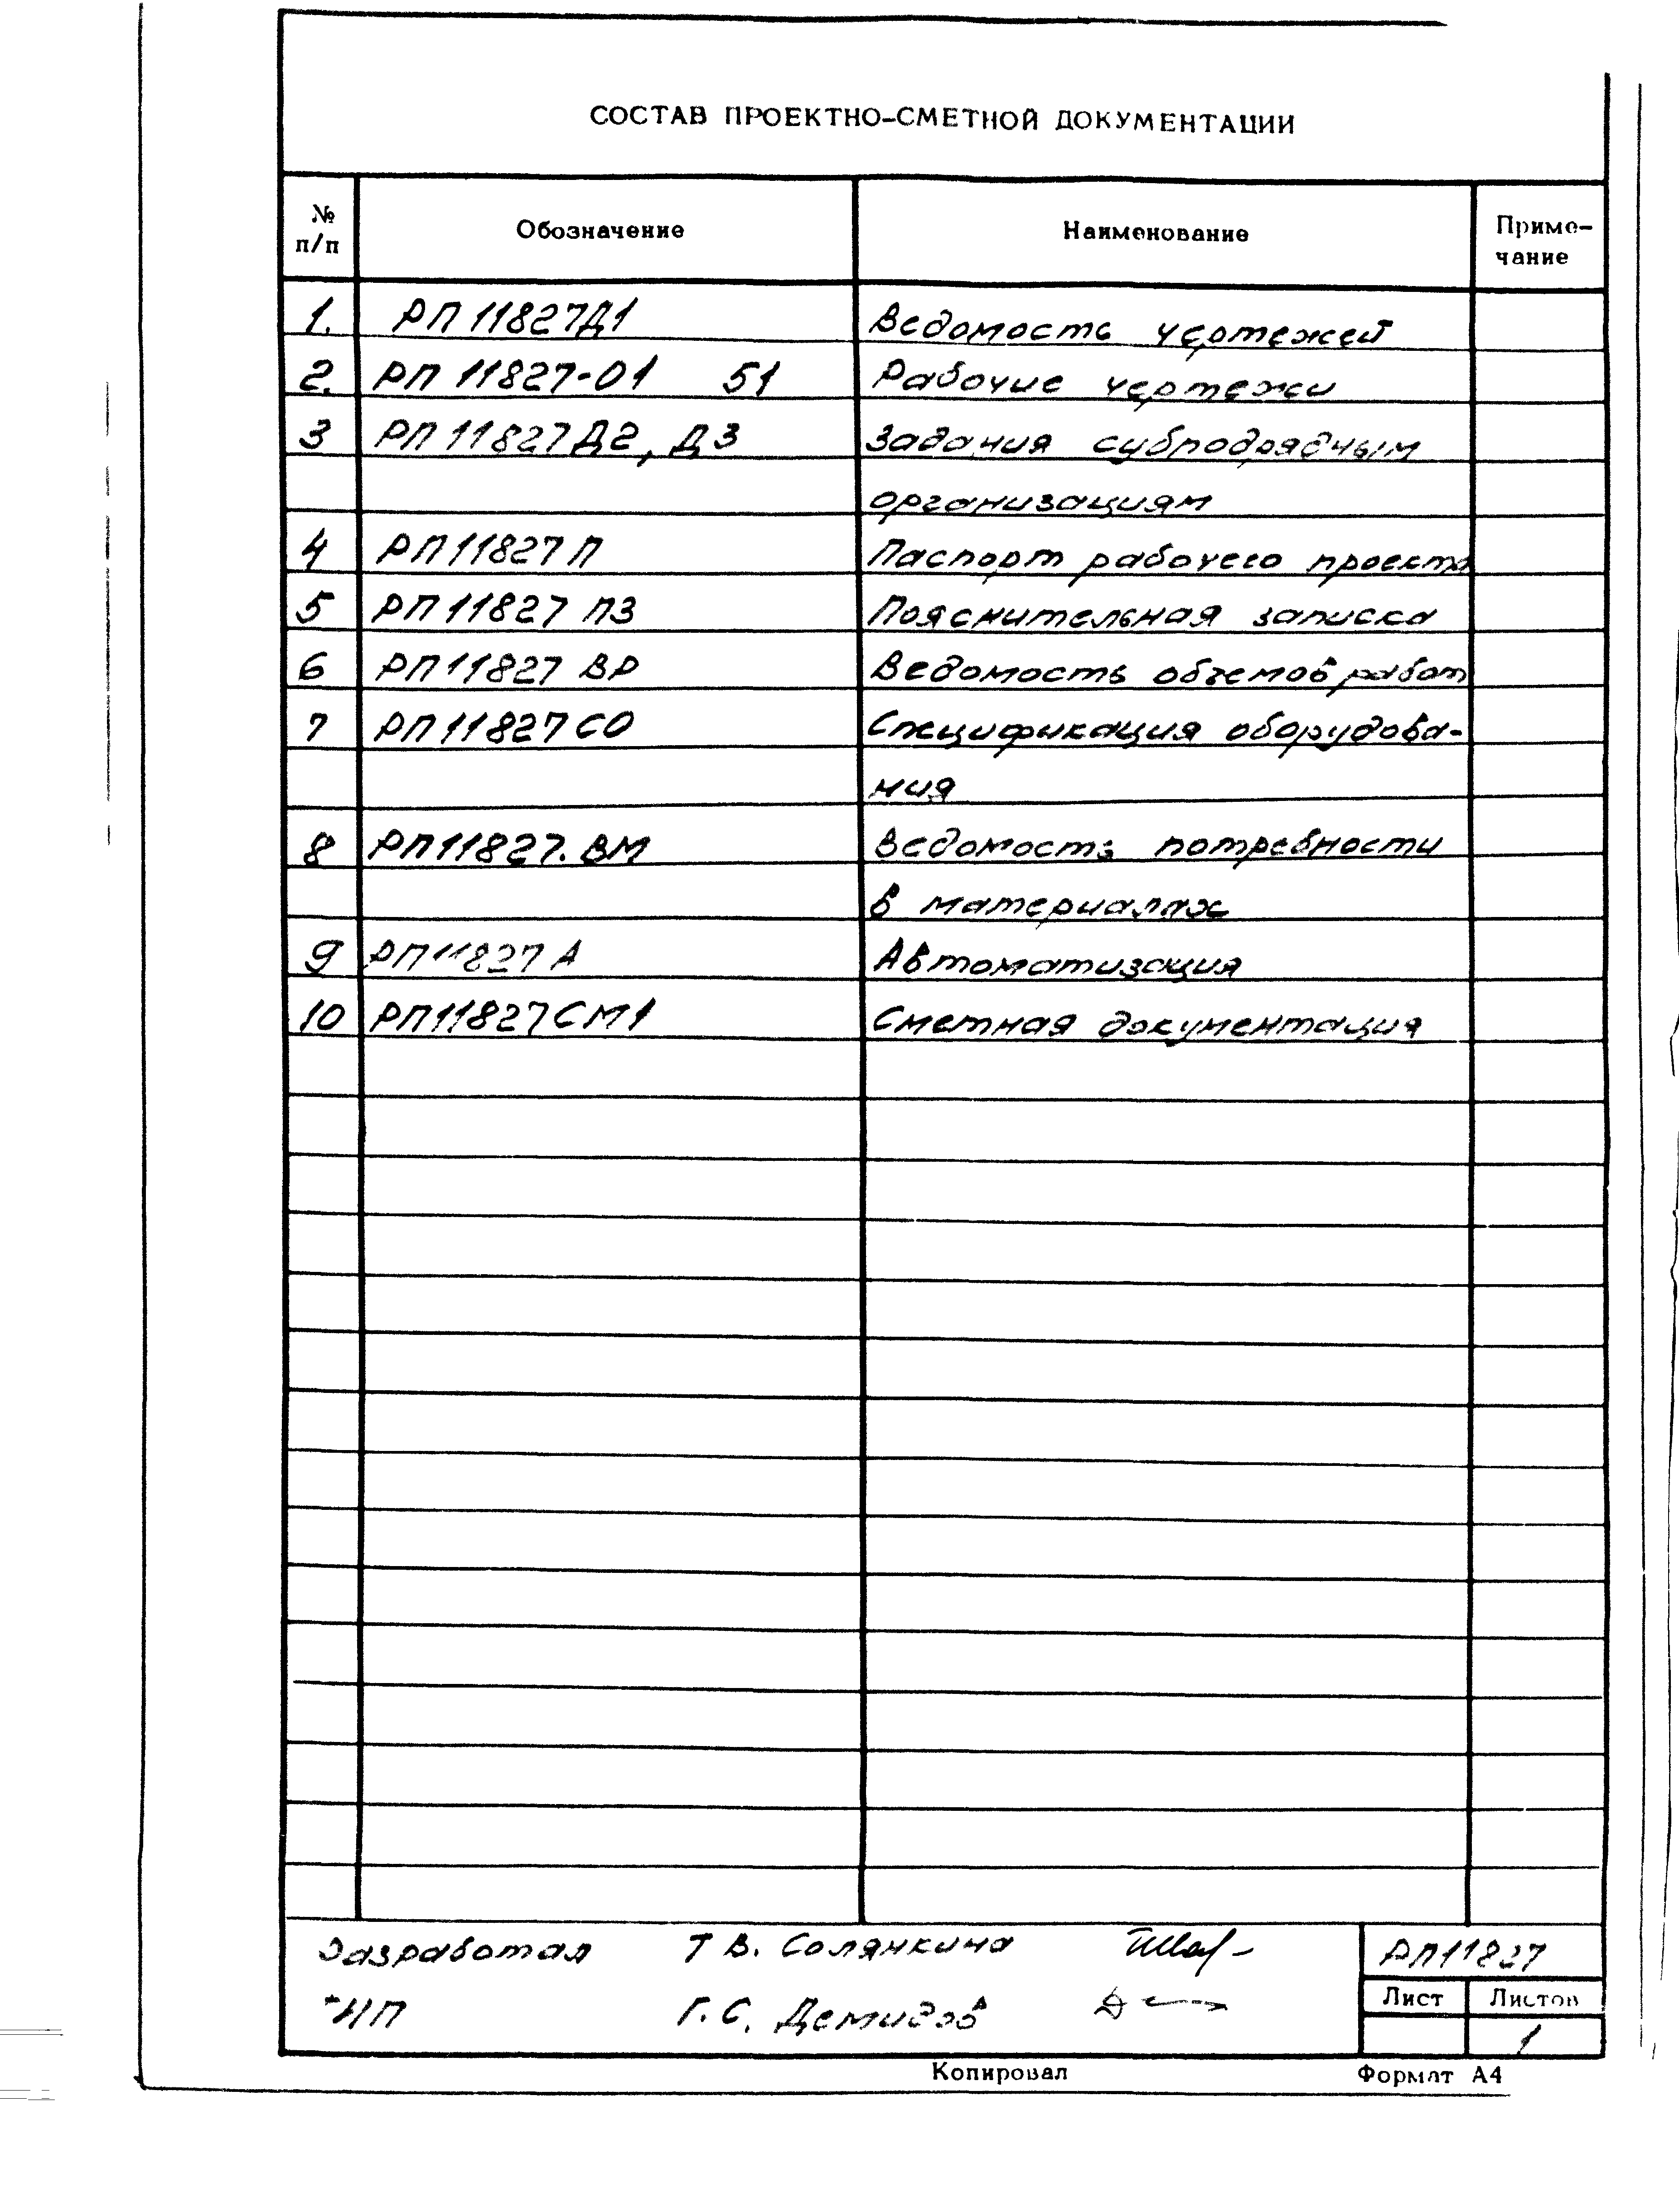 СОСТАВ ПРОЕКТНО-СМЕТНОЙ ДОКУМЕНТАЦИИ
№ п/п Обозначение Наименование Приме-чание
1. РП 11827Д1 Ведомость чертежей
2. РП 11827-01 51 Рабочие чертежи
3 РП 11827 Д2, Д3 Задания субподрядным
организациям
4 РП 11827 П Паспорт рабочего проекта
5 РП 11827 ПЗ Пояснительная записка
6 РП 11827 ВР Ведомость объемов работ
7 РП 11827 СО Спецификация оборудова-
ния
8 РП 11827. ВМ Ведомость потребности
в материалах
9 РП 11827 А Автоматизация
10 РП 11827 СМ1 Сметная документация
Разработал Т В. Солянкина РП 11827
ГИП Г. С. Демидов Лист Листов
1
Копировал Формат А4